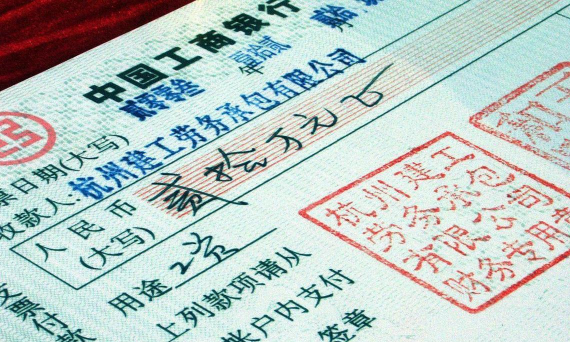 中国工商银行
贰零零叁 年 壹拾贰
票日期(大写)
收款人:杭州建工劳务承包有限公司
人民币
(大写)
贰拾万元
用途 工资
上列款项请从
帐户内支付
签章
支票付款
杭州建工
劳务承包
有限公司
财务专用